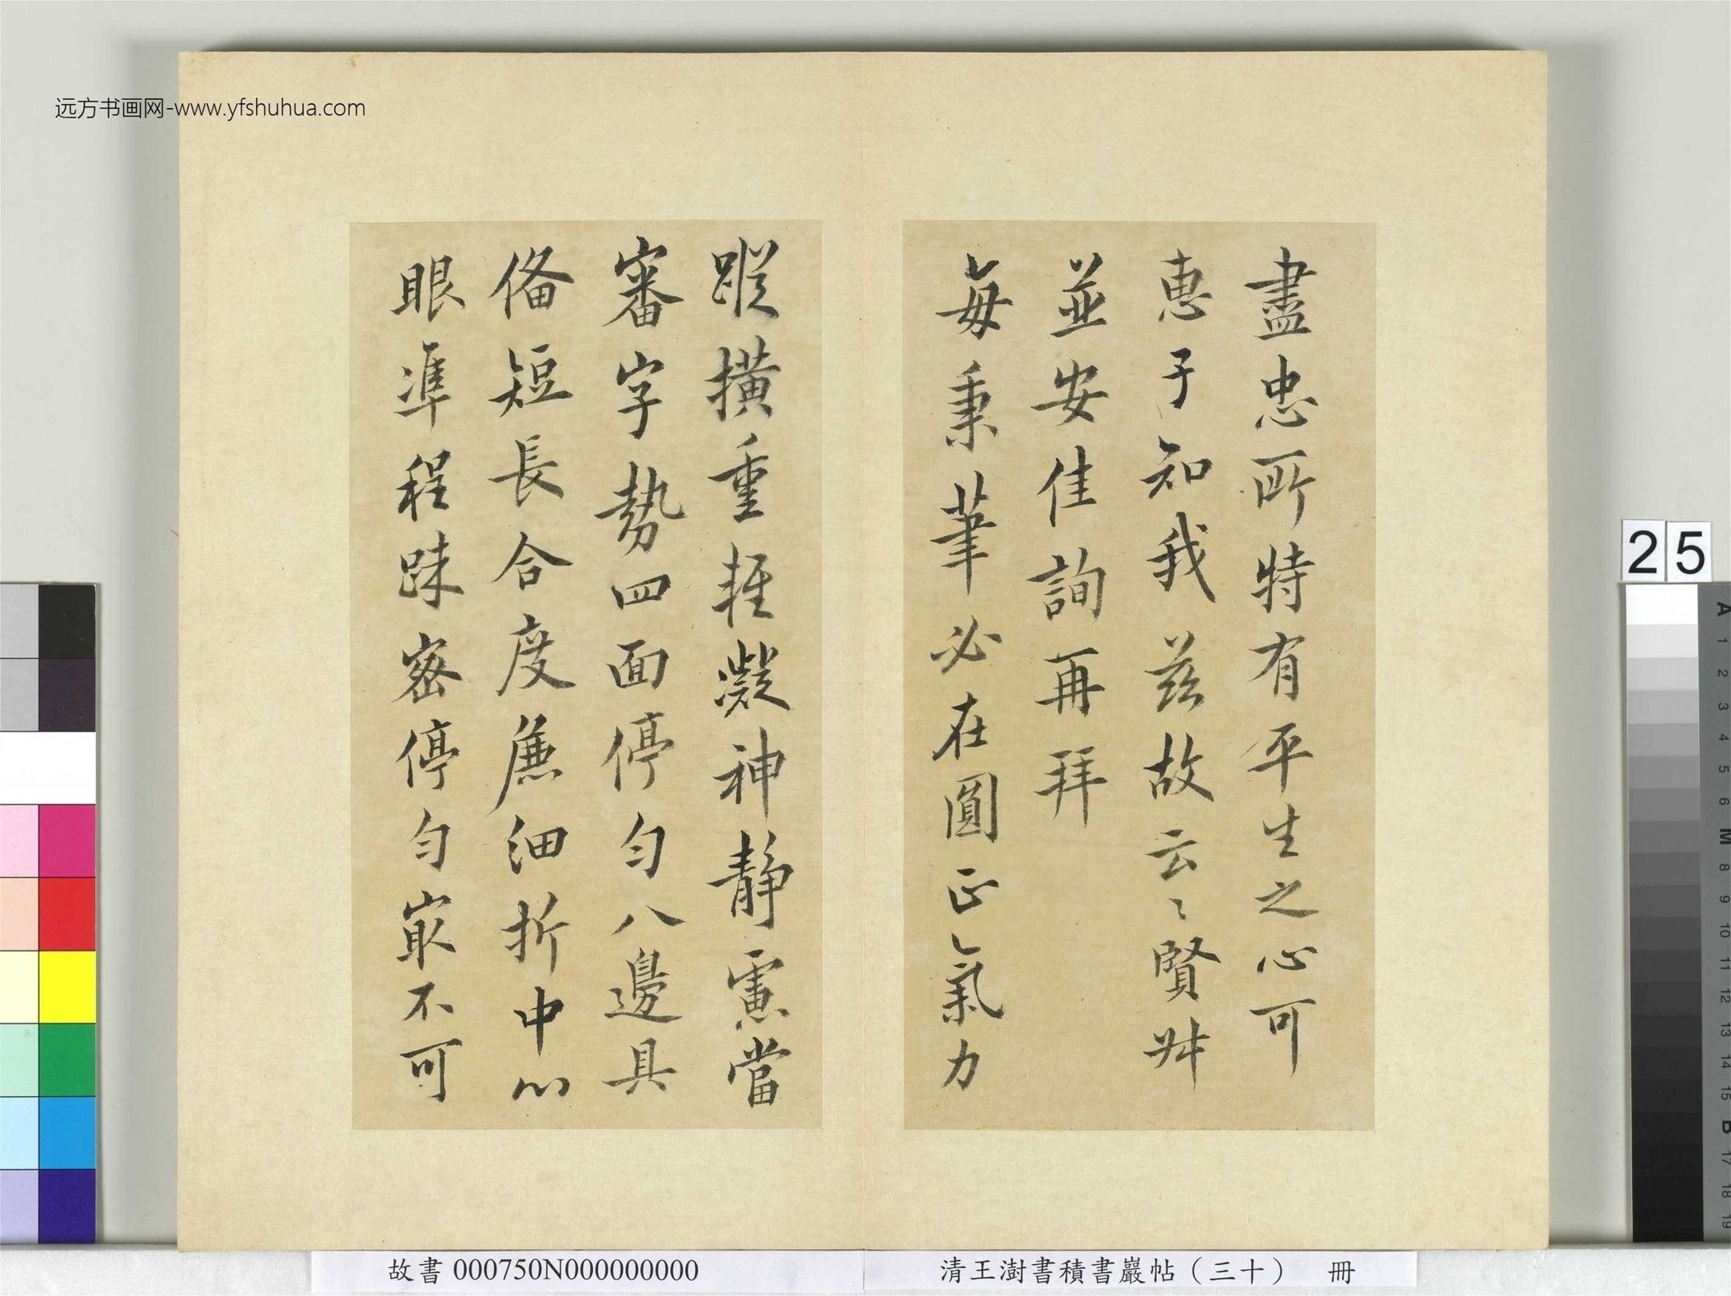 远方书画网-www.yfshuhua.com
盡忠所特有平生之心可
惠子知我茲故云〻賢姊
並安佳詢再拜
每秉筆必在圓正氣力
蹤撗重軽凝神静慮當
審字勢四面停勻八邊具
俻短長合度麁細折中心
眼準程踈密停勻㝡不可
25
故書 000750N000000000
清王澍書積書巖帖（三十） 冊